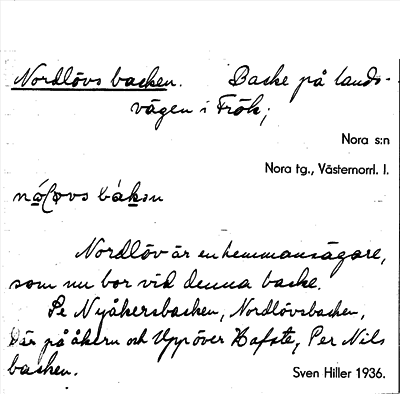 Nordlövs backen. Backe på lands-
vägen i Frök;
Nora s:n
Nora tg., Västernorrl. l.
Nordlöv är en hemmansägare,
som nu bor vid denna backe.
Se Nyåkersbacken, Nordlövsbacken,
på åkern och Uppöver Per Nils
backen.
Sven Hiller 1936.